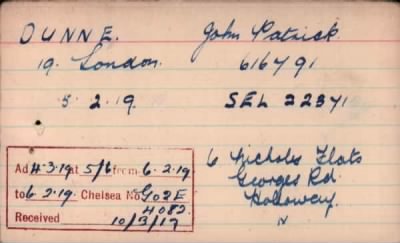 DUNNE. John Patrick.
19. London. 616791
5. 2. 19. SEL 22371
6 Nicholas Flats
Georges Rd.
Holloway.
N
Ad 4-3-19 at 5/6 from 6. 2. 19.
to 6 2. 19. Chelsea No G02E
4082.
Received 10/3/19